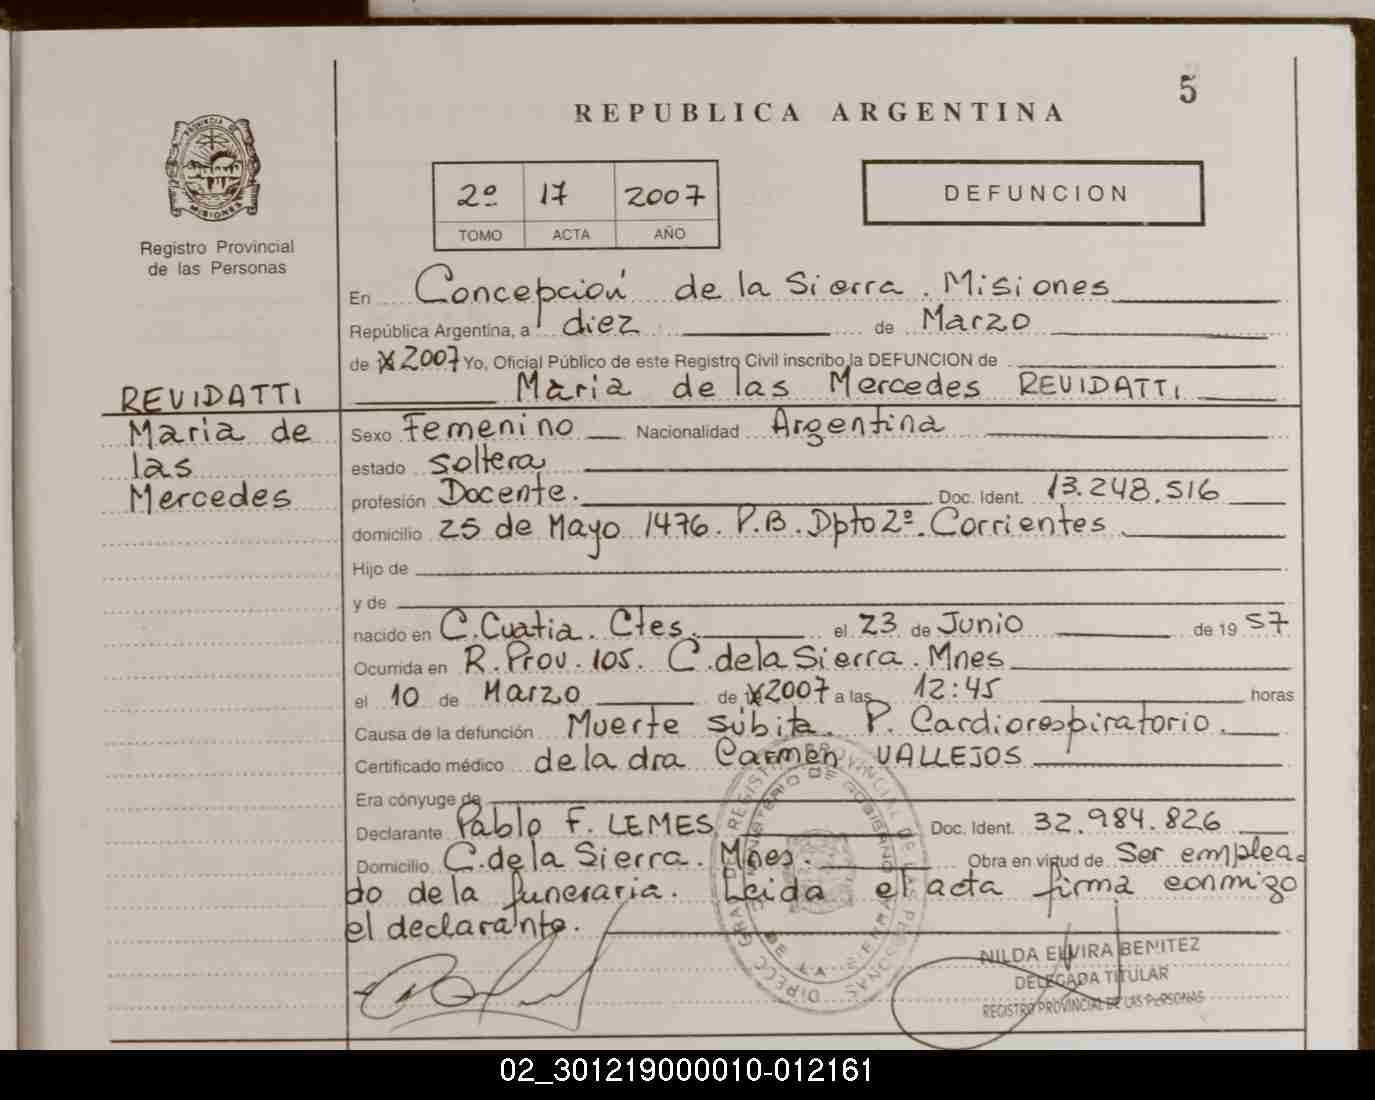 5
REPUBLICA ARGENTINA
PROVINCIA DE MISIONES
Registro Provincial
de las Personas
2º 17 2007
TOMO ACTA AÑO
DEFUNCION
En Concepción de la Sierra. Misiones
República Argentina, a diez de Marzo
de 2007 Yo, Oficial Público de este Registro Civil inscribo la DEFUNCION de
REVIDATTI
Maria de
las
Mercedes
Maria de las Mercedes REVIDATTI
Sexo Femenino Nacionalidad Argentina
estado soltera
profesión Docente. Doc. Ident. 13.248.516
domicilio 25 de Mayo 1476. P.B. Dpto 2º. Corrientes
Hijo de
y de
nacido en C. Cuatia. Ctes. el 23 de Junio de 19 57
Ocurrida en R. Prov. 105. C. de la Sierra. Mnes
el 10 de Marzo de 2007 a las 12:45 horas
Causa de la defunción Muerte súbita. P. Cardiorespiratorio.
Certificado médico de la dra Carmen VALLEJOS
Era cónyuge de
Declarante Pablo F. LEMES Doc. Ident. 32.984.826
Domicilio C. de la Sierra. Mnes. Obra en virtud de Ser emplea-
do de la funeraria. Leida el acta firma conmigo
el declarante.
NILDA ELVIRA BENITEZ
DELEGADA TITULAR
REGISTRO PROVINCIAL DE LAS PERSONAS
02_301219000010-012161